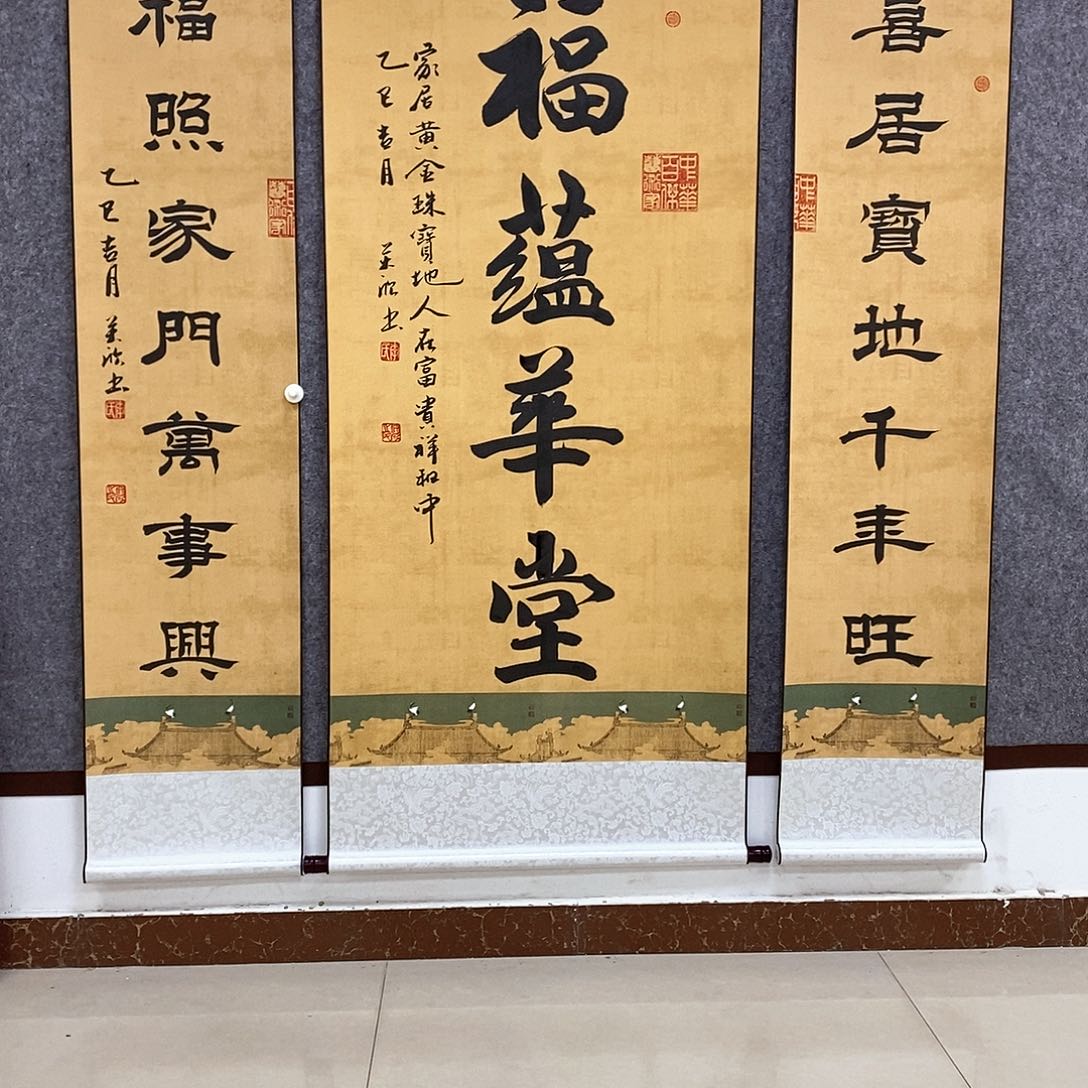 喜居寶地千年旺
福蘊華堂
家居黄金珠寶地人在富貴祥和中
乙巳吉月
福照家門萬事興
乙巳吉月
中華百傑藝術家